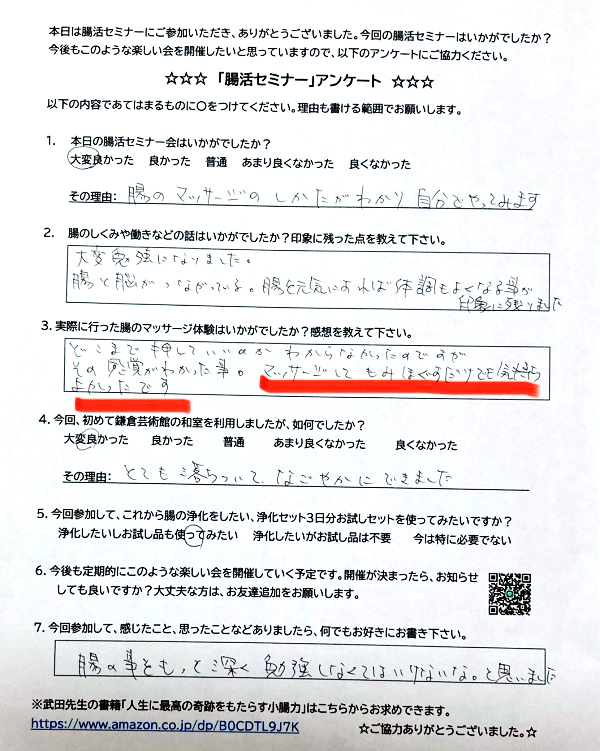 本日は腸活セミナーにご参加いただき、ありがとうございました。今回の腸活セミナーはいかがでしたか？
今後もこのような楽しい会を開催したいと思っていますので、以下のアンケートにご協力ください。
☆☆☆ 「腸活セミナー」アンケート ☆☆☆
以下の内容であてはまるものに○をつけてください。理由も書ける範囲でお願いします。
1. 本日の腸活セミナー会はいかがでしたか？
大変良かった 良かった 普通 あまり良くなかった 良くなかった
その理由: 腸のマッサージのしかたがわかり自分でやってみます
2. 腸のしくみや働きなどの話はいかがでしたか？印象に残った点を教えて下さい。
大変勉強になりました。
腸と脳がつながっている。腸を元気にすれば体調もよくなる事が
印象に残りました
3. 実際に行った腸のマッサージ体験はいかがでしたか？感想を教えて下さい。
どこまで押していいのかわからなかったのですが
その感覚がわかった事。マッサージしてもみほぐすだけでも気持ち
よかったです
4. 今回、初めて鎌倉芸術館の和室を利用しましたが、如何でしたか？
大変良かった 良かった 普通 あまり良くなかった 良くなかった
その理由: とても落ちついて、なごやかにできました
5. 今回参加して、これから腸の浄化をしたい、浄化セット3日分お試しセットを使ってみたいですか？
浄化したいしお試し品も使ってみたい 浄化したいがお試し品は不要 今は特に必要でない
6. 今後も定期的にこのような楽しい会を開催していく予定です。開催が決まったら、お知らせ
しても良いですか？大丈夫な方は、お友達追加をお願いします。
7. 今回参加して、感じたこと、思ったことなどありましたら、何でもお好きにお書き下さい。
腸の事をもっと深く勉強しなくてはいけないな。と思いました
※武田先生の書籍「人生に最高の奇跡をもたらす小腸力」はこちらからお求めできます。
https://www.amazon.co.jp/dp/B0CDTL9J7K ☆ご協力ありがとうございました。☆